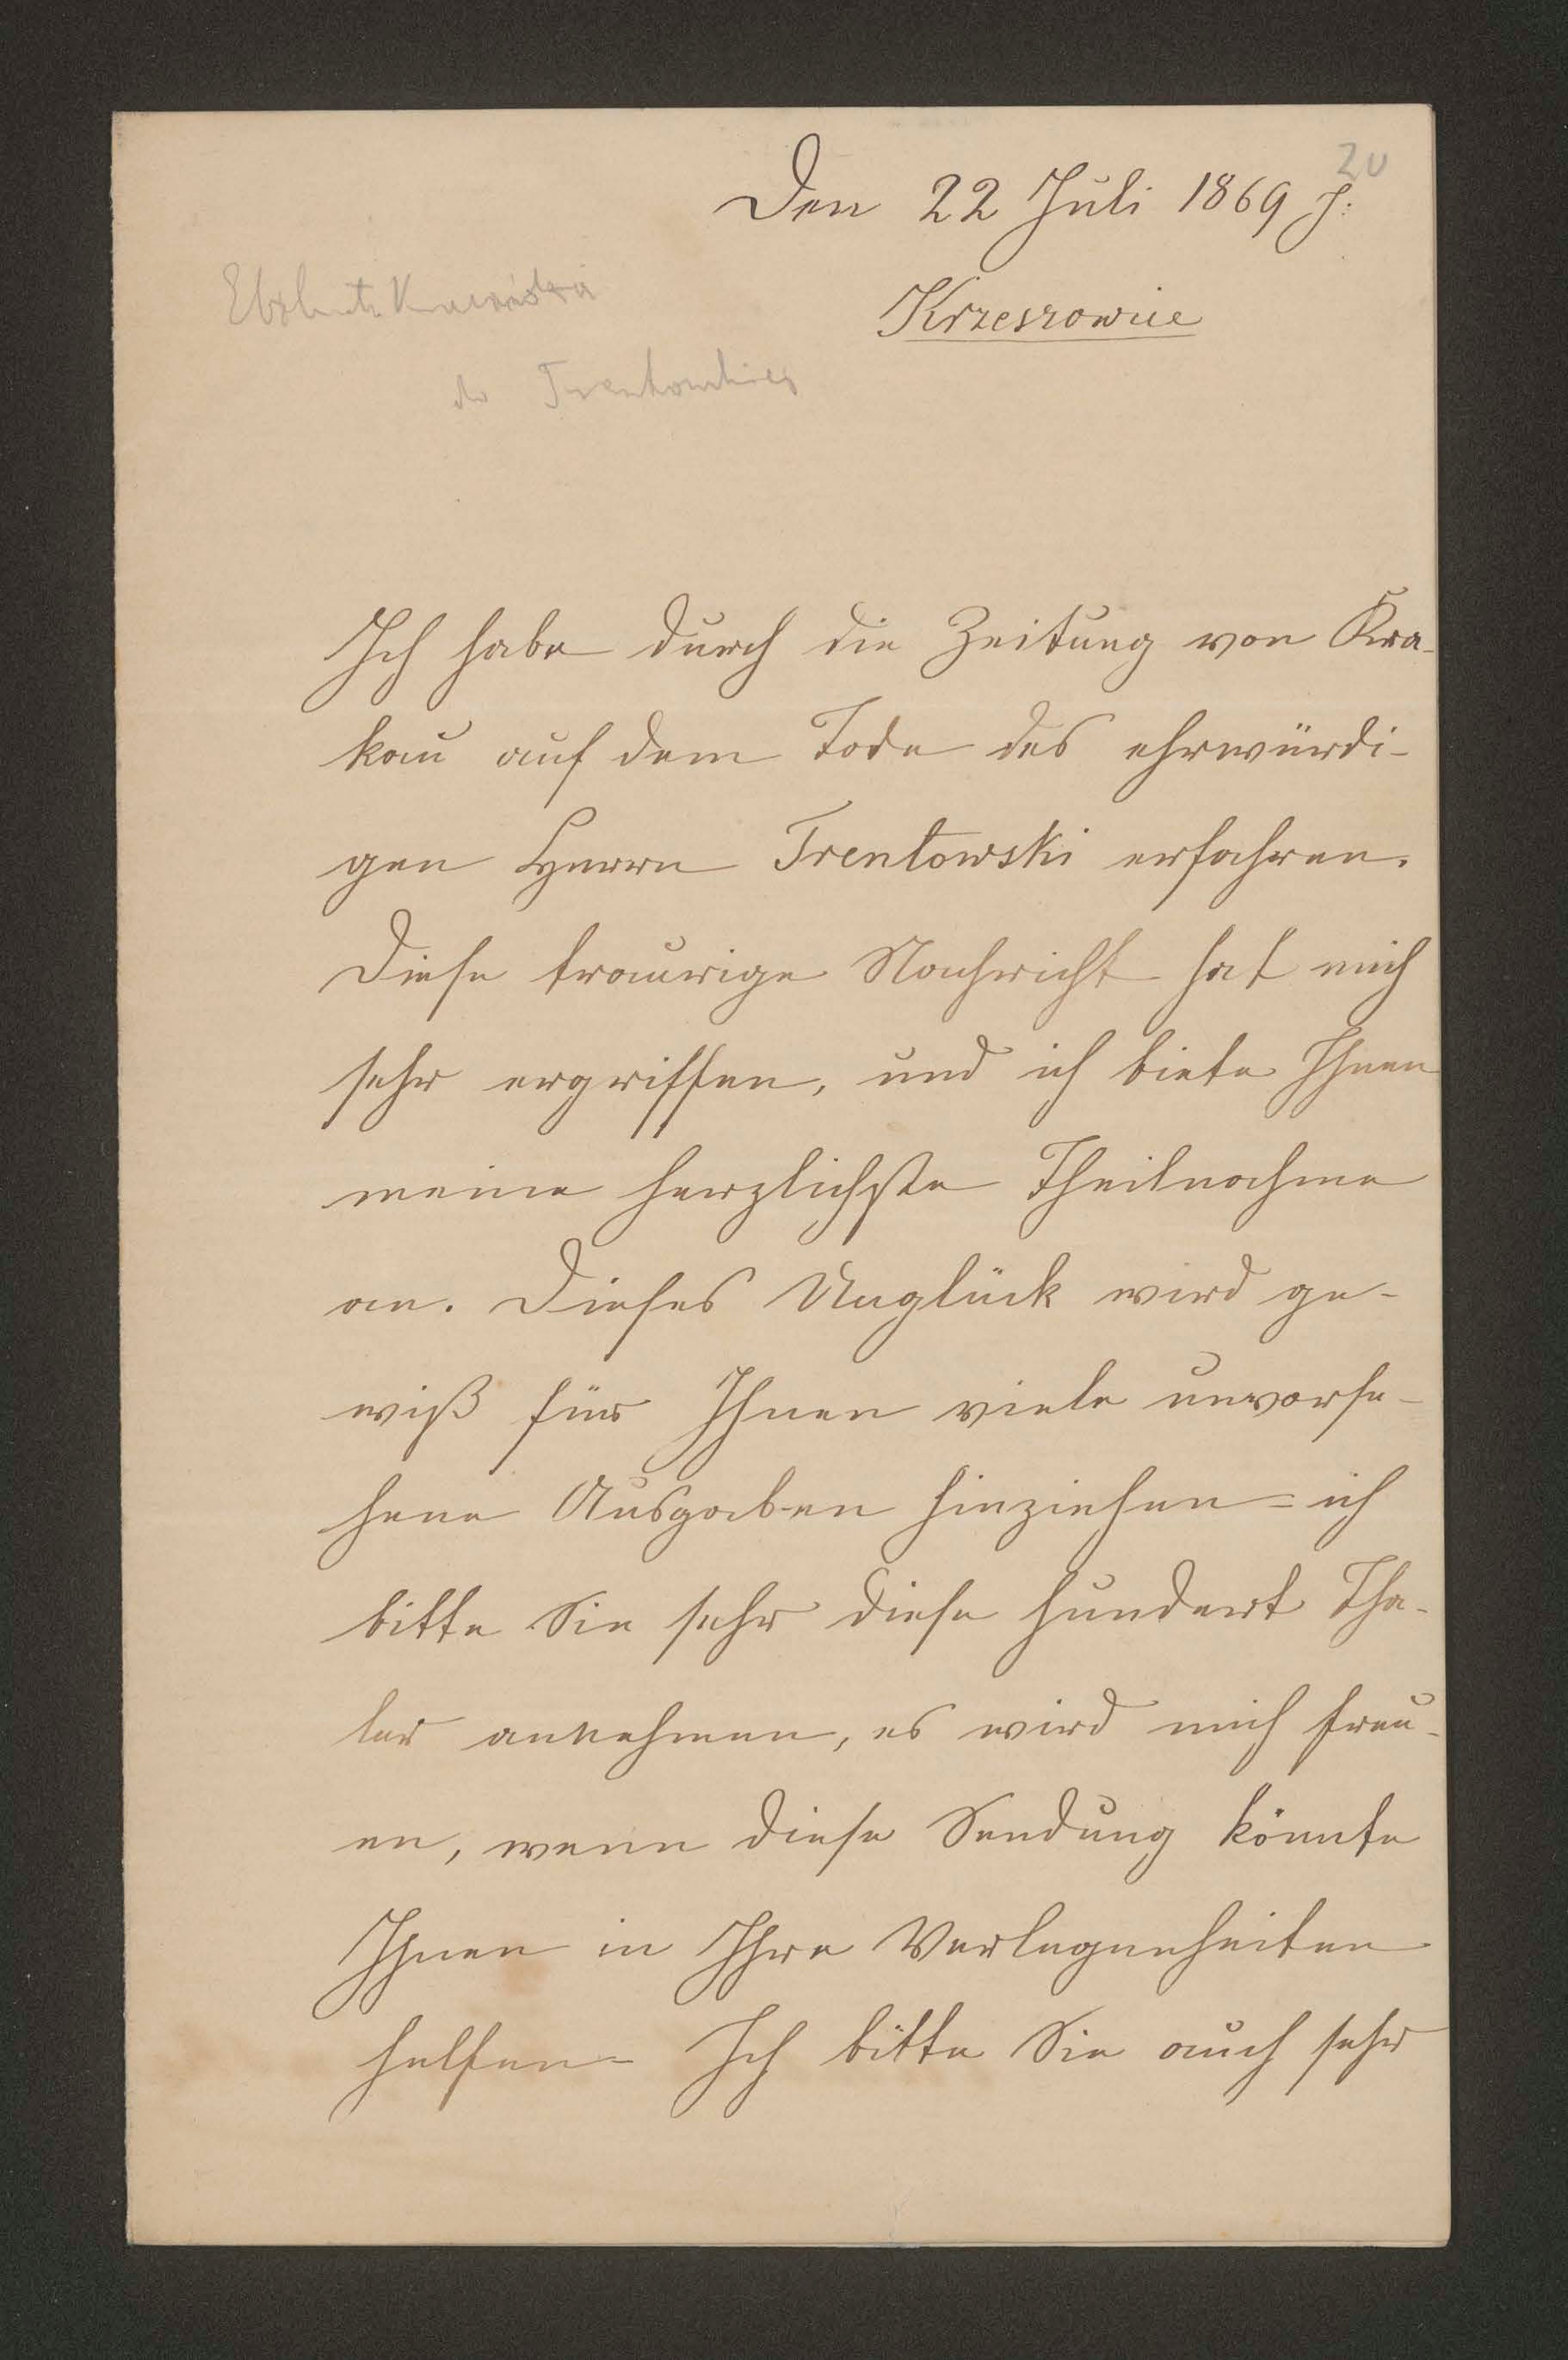 20
Den 22 Juli 1869 J:
Krzeszowice
do
Ich habe durch die Zeitung von Kra-
kau auf dem Tode des ehrwürdi-
gen Herrn Trentowski erfahren.
Diese traurige Nachricht hat mich
sehr ergriffen, und ich biete Ihnen
meine herzlichste Theilnahme
an. Dieses Unglück wird ge-
wiß für Ihnen viele unvorse-
hene Ausgaben hinziehen = ich
bitte Sie sehr diese hundert Tha-
ler annehmen, es wird mich freu-
en, wenn diese Sendung könnte
Ihnen in Ihre Verlegenheiten
helfen - Ich bitte Sie auch sehr